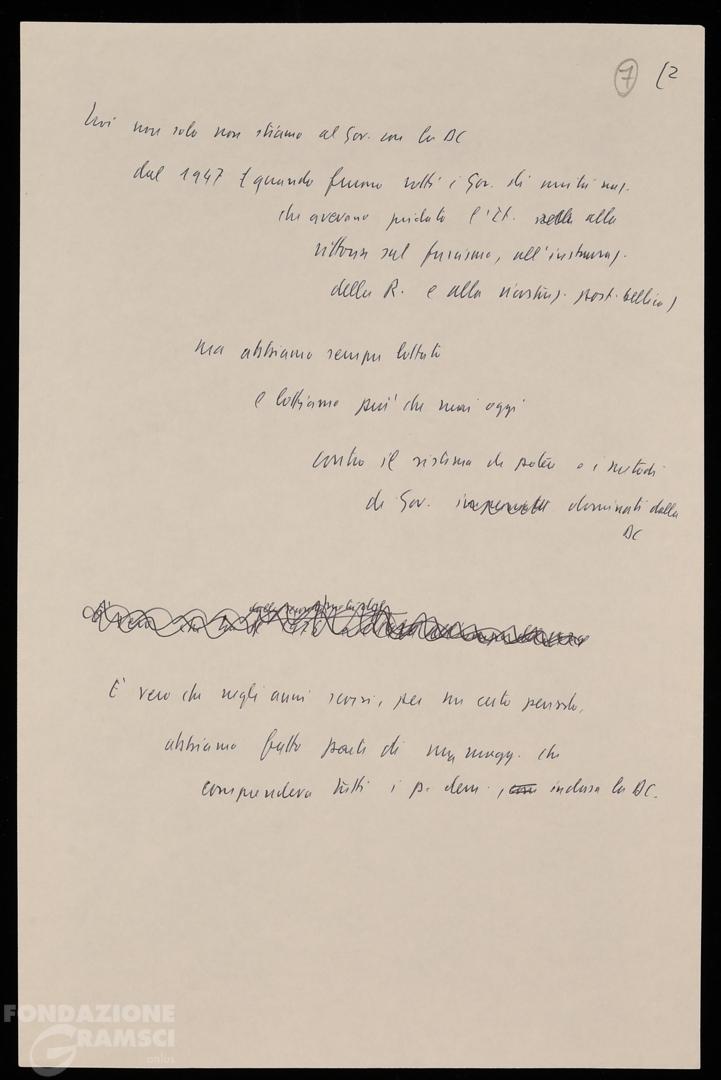 7 (2
Noi non solo non stiamo al Gov. con la DC
dal 1947 (quando furono rotti i Gov. di unità naz.
che avevano guidato l'It. nella alla
vittoria sul fascismo, all'instauraz.
della R. e alla ricostruz. post-bellica)
ma abbiamo sempre lottato
e lottiamo più che mai oggi
contro il sistema di potere e i metodi
di Gov. dominati dalla
DC
È vero che negli anni scorsi, per un certo periodo,
abbiamo fatto parte di una magg. che
comprendeva tutti i p. dem., inclusa la DC.
FONDAZIONE
GRAMSCI
onlus